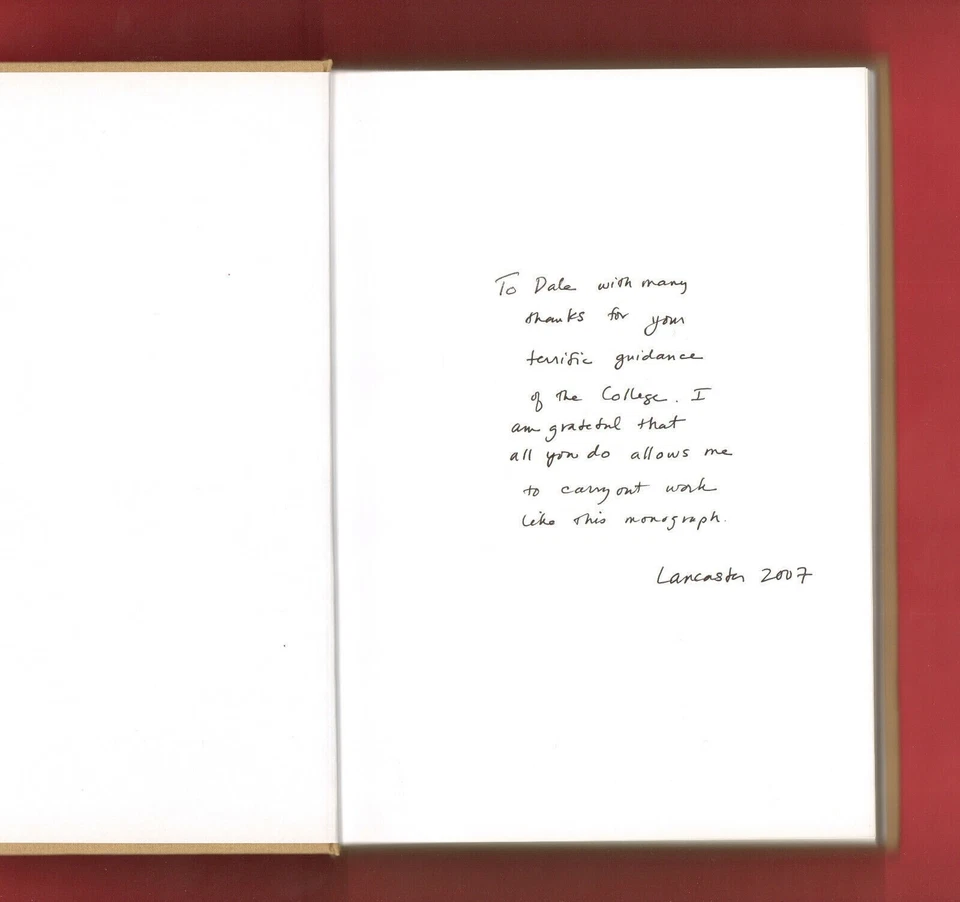 To Dale with many
thanks for your
terrific guidance
of the College. I
am grateful that
all you do allows me
to carry out work
like this monograph.
Lancaster 2007